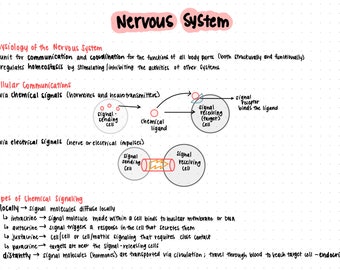 Nervous System
ysiology of the Nervous System
unit for communication and coordination for the functions of all body parts (both structurally and functionally)
regulates homeostasis by stimulating/inhibiting the activities of other systems
ellular Communications
via chemical signals (hormones and neurotransmitters)
signal-sending cell
chemical ligand
signal receiving (target) cell
signal receptor binds the ligand
via electrical signals (nerve or electrical impulses)
signal sending cell
signal receiving cell
pes of Chemical Signaling
locally → signal molecules diffuse locally
↳ intracrine → signal molecule made within a cell binds to nuclear membrane or DNA
↳ autocrine → signal triggers a response in the cell that secretes them
↳ juxtacrine → cell/cell or cell/matrix signaling that requires close contact
↳ paracrine → targets are near the signal-releasing cells
distantly → signal molecules (hormones) are transported via circulation; travel through blood to reach target cell - endocri